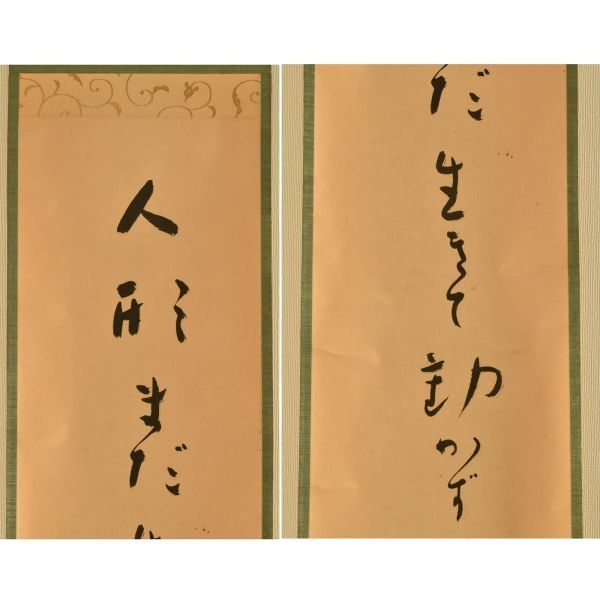 人形まだ生
だ生きて動かず